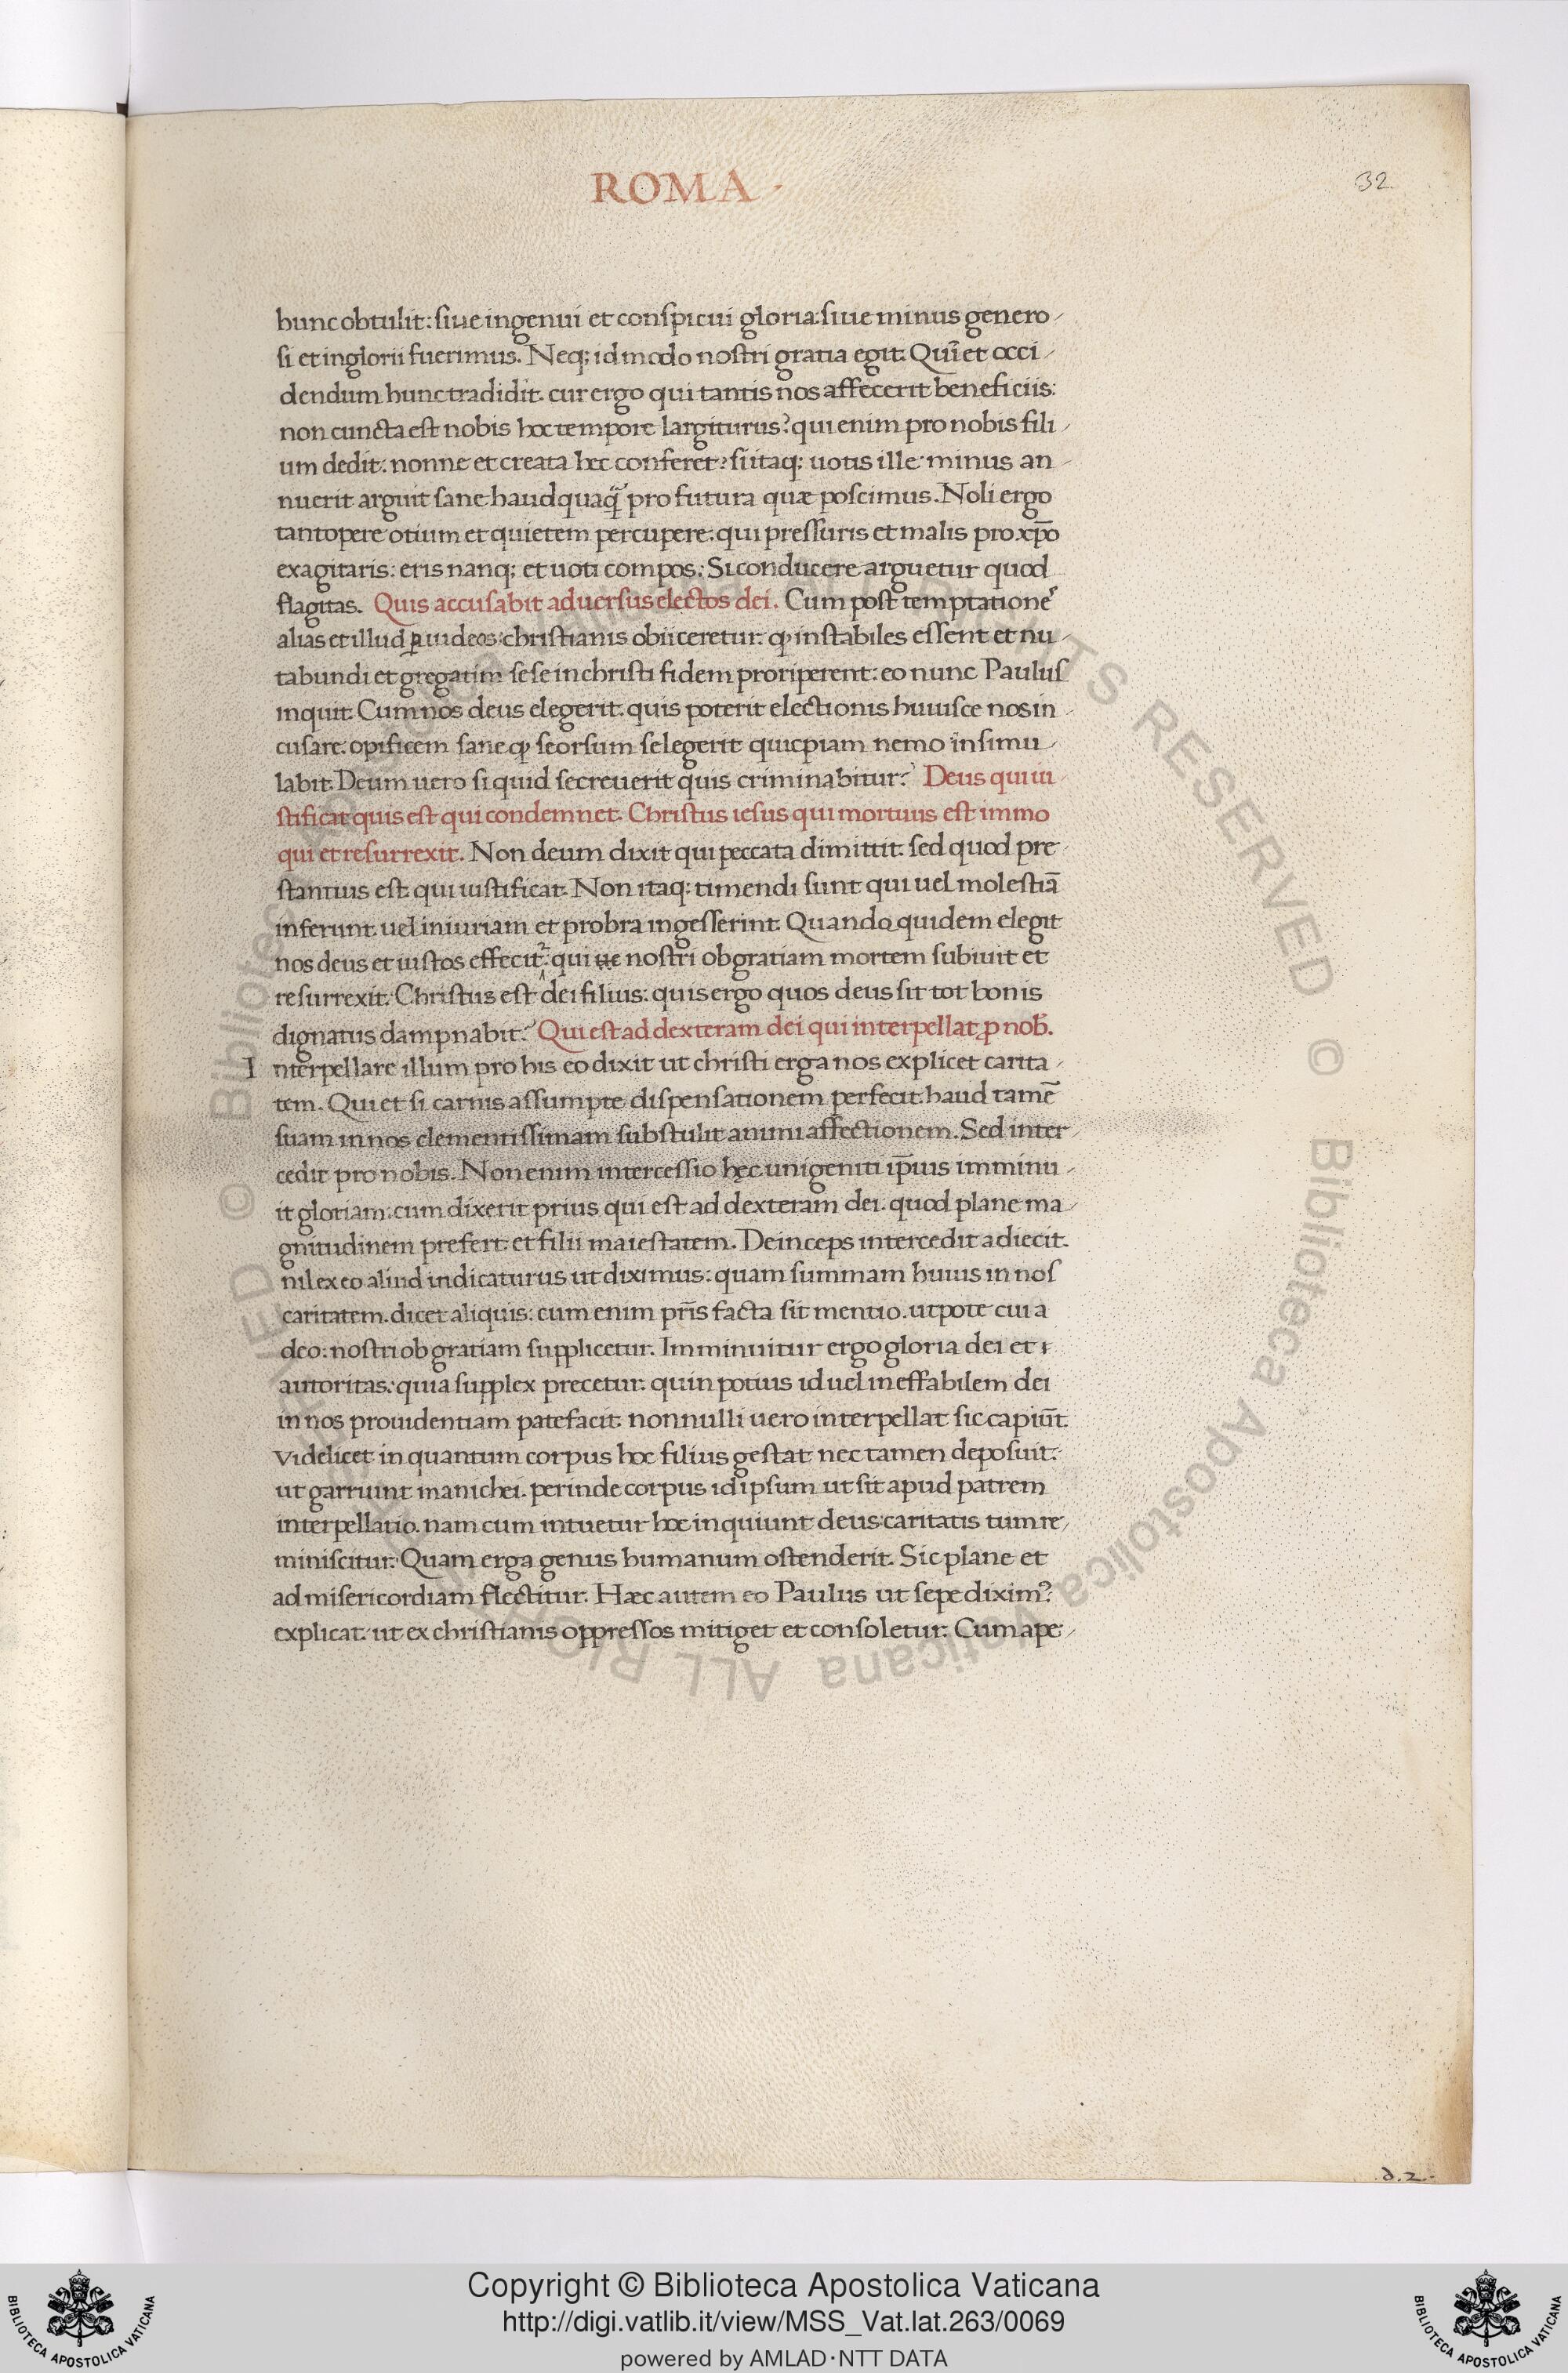 ROMA ·
32
hunc obtulit: siue ingenui et conspicui gloria: siue minus genero/
si et inglorii fuerimus. Neq; id modo nostri gratia egit. Qui͞ et occi/
dendum hunc tradidit. cur ergo qui tantis nos affecerit beneficiis:
non cuncta est nobis hoc tempore largiturus? qui enim pro nobis fili/
um dedit: nonne et creata hec conferet? si itaq; uotis ille minus an/
nuerit arguit sane haudquaq̃ pro futura quæ poscimus. Noli ergo
tantopere otium et quietem percupere: qui pressuris et malis pro xp̄o
exagitaris: eris nanq; et uoti compos: Si conducere arguetur quod
flagitas. Quis accusabit aduersus electos dei. Cum post temptationē
alias et illud ꝑ iudeos: christianis obiiceretur. ꝙ instabiles essent et nu/
tabundi et gregatim sese in christi fidem proriperent: eo nunc Paulus
inquit. Cum nos deus elegerit. quis poterit electionis huiusce nos in/
cusare. opificem sane ꝙ seorsum selegerit quicpiam nemo insimu/
labit. Deum uero si quid secreuerit quis criminabitur? Deus qui iu/
stificat quis est qui condemnet. Christus iesus qui mortuus est immo
qui et resurrexit. Non deum dixit qui peccata dimittit. sed quod pre/
stantius est. qui iustificat. Non itaq; timendi sunt qui uel molestiā
inferunt. uel iniuriam et probra ingesserint. Quando quidem elegit
nos deus et iustos effecit. qui ue nostri ob gratiam mortem subiuit et
resurrexit. Christus est dei filius: quis ergo quos deus sit tot bonis
dignatus dampnabit? Qui est ad dexteram dei qui interpellat ꝓ nob̄.
I nterpellare illum pro his eo dixit ut christi erga nos explicet carita/
tem. Qui et si carnis assumpte dispensationem perfecit. haud tamē
suam in nos clementissimam substulit animi affectionem. Sed inter/
cedit pro nobis. Non enim intercessio hęc unigeniti ip̄ius imminu/
it gloriam: cum dixerit prius qui est ad dexteram dei. quod plane ma/
gnitudinem prefert: et filii maiestatem. Deinceps intercedit adiecit.
nil ex eo aliud indicaturus ut diximus: quam summam huius in nos
caritatem. dicet aliquis: cum enim pr̄is facta sit mentio. utpote cui a
deo: nostri ob gratiam supplicetur. Imminuitur ergo gloria dei et
autoritas: quia supplex precetur. quin potius id uel ineffabilem dei
in nos prouidentiam patefacit. nonnulli uero interpellat sic capiūt.
videlicet in quantum corpus hoc filius gestat nec tamen deposuit:
ut garriunt manichei. perinde corpus id ipsum ut sit apud patrem
interpellatio. nam cum intuetur hoc inquiunt deus caritatis tum re/
miniscitur. Quam erga genus humanum ostenderit. Sic plane et
ad misericordiam flectitur. Hæc autem eo Paulus ut sepe dixim?
explicat: ut ex christianis oppressos mitiget et consoletur. Cum ape/
.d.2.
© Biblioteca Apostolica Vaticana ALL RIGHTS RESERVED
Copyright © Biblioteca Apostolica Vaticana
http://digi.vatlib.it/view/MSS_Vat.lat.263/0069
powered by AMLAD·NTT DATA
BIBLIOTECA APOSTOLICA VATICANA
BIBLIOTECA APOSTOLICA VATICANA